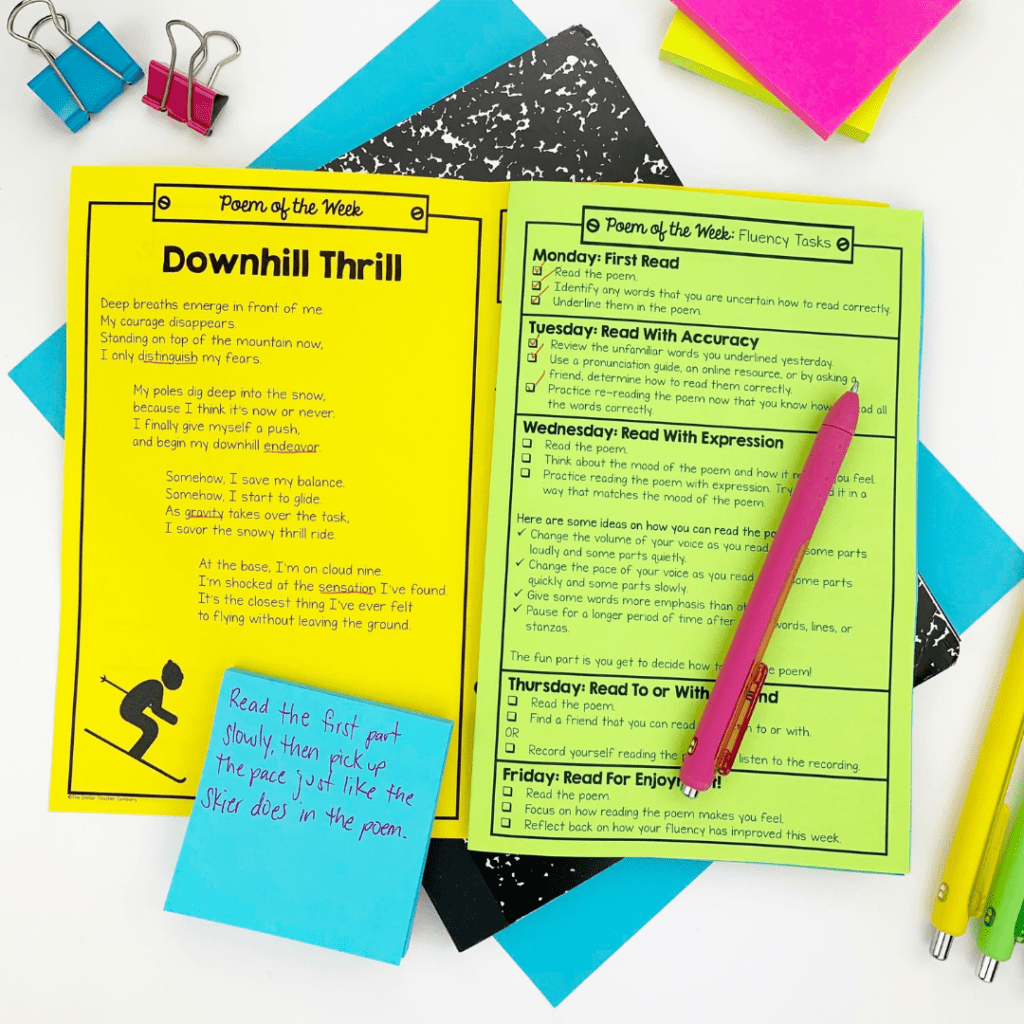 Poem of the Week
Downhill Thrill
Deep breaths emerge in front of me.
My courage disappears.
Standing on top of the mountain now,
I only distinguish my fears.
My poles dig deep into the snow,
because I think it's now or never.
I finally give myself a push,
and begin my downhill endeavor.
Somehow, I save my balance.
Somehow, I start to glide.
As gravity takes over the task,
I savor the snowy thrill ride.
At the base, I'm on cloud nine.
I'm shocked at the sensation I've found.
It's the closest thing I've ever felt
to flying without leaving the ground.
Read the first part
slowly, then pick up
the pace just like the
skier does in the poem.
Poem of the Week: Fluency Tasks
Monday: First Read
Read the poem.
Identify any words that you are uncertain how to read correctly.
Underline them in the poem.
Tuesday: Read With Accuracy
Review the unfamiliar words you underlined yesterday.
Use a pronunciation guide, an online resource, or by asking a
friend, determine how to read them correctly.
Practice re-reading the poem now that you know how all
the words correctly.
Wednesday: Read With Expression
Read the poem.
Think about the mood of the poem and how it you feel.
Practice reading the poem with expression. Try it in a
way that matches the mood of the poem.
Here are some ideas on how you can read the
Change the volume of your voice as you read some parts
loudly and some parts quietly.
Change the pace of your voice as you read some parts
quickly and some parts slowly.
Give some words more emphasis than
Pause for a longer period of time after words, lines, or
stanzas.
The fun part is you get to decide how the poem!
Thursday: Read To or With
Read the poem.
Find a friend that you can read to or with.
OR
Record yourself reading the listen to the recording.
Friday: Read For
Read the poem.
Focus on how reading the poem makes you feel.
Reflect back on how your fluency has improved this week.